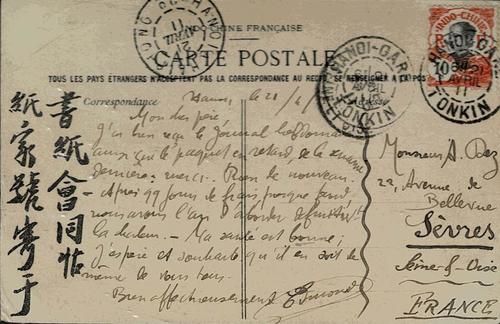 INDO-CHINE FRANÇAISE
CARTE POSTALE
TOUS LES PAYS ÉTRANGERS N'ACCEPTENT PAS LA CORRESPONDANCE AU RECTO, SE RENSEIGNER A LA POSTE
Correspondance
Hanoi, le 21/4/
Mon cher père,
J'ai bien reçu le journal hebdomadaire
ainsi que le paquet en retard de la semaine
dernière, merci. Rien de nouveau.
Après 99 jours de frais, presque froid,
nous avons l'air d'aborder
la chaleur. - Ma santé est bonne;
j'espère et souhaite qu'il en soit de
même de vous tous.
Bien affectueusement Edmond
Monsieur A.
22, Avenue de
Bellevue
Sèvres
Seine-&-Oise
FRANCE
書紙會同帖
紙家號寄于
INDO-CHINE
HANOI-GARE
11 AVRIL
TONKIN
HANOI-GARE
AVRIL
11
TONKIN
HANOI
21 AVRIL
11